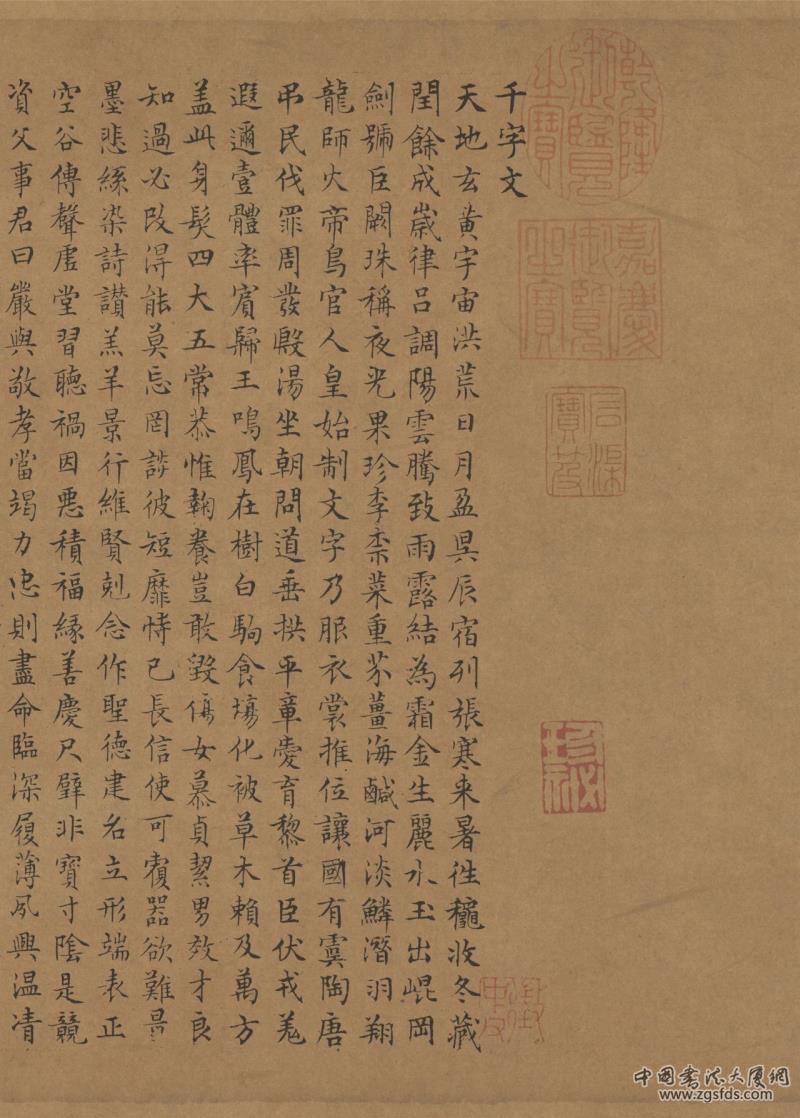 乾隆御覽之寶
嘉慶御覽之寶
石渠寶笈
珍祕
千字文
天地玄黃宇宙洪荒日月盈昃辰宿列張寒来暑徃龝收冬藏
閏餘成歲律呂調陽雲騰致雨露結為霜金生麗水玉出崐岡
劍號巨闕珠稱夜光果珍李柰菜重芥薑海鹹河淡鱗潛羽翔
龍師火帝鳥官人皇始制文字乃服衣裳推位讓國有虞陶唐
弔民伐罪周發殷湯坐朝問道垂拱平章愛育黎首臣伏戎羌
遐邇壹體率賓歸王鳴鳳在樹白駒食場化被草木賴及萬方
盖此身髮四大五常恭惟鞠養豈敢毀傷女慕貞絜男效才良
知過必改得能莫忘罔談彼短靡恃己長信使可覆器欲難量
墨悲絲染詩讚羔羊景行維賢剋念作聖德建名立形端表正
空谷傳聲虛堂習聽禍因惡積福緣善慶尺璧非寶寸陰是競
資父事君曰嚴與敬孝當竭力忠則盡命臨深履薄夙興温凊
中國書法大廈網
www.zgsfds.com